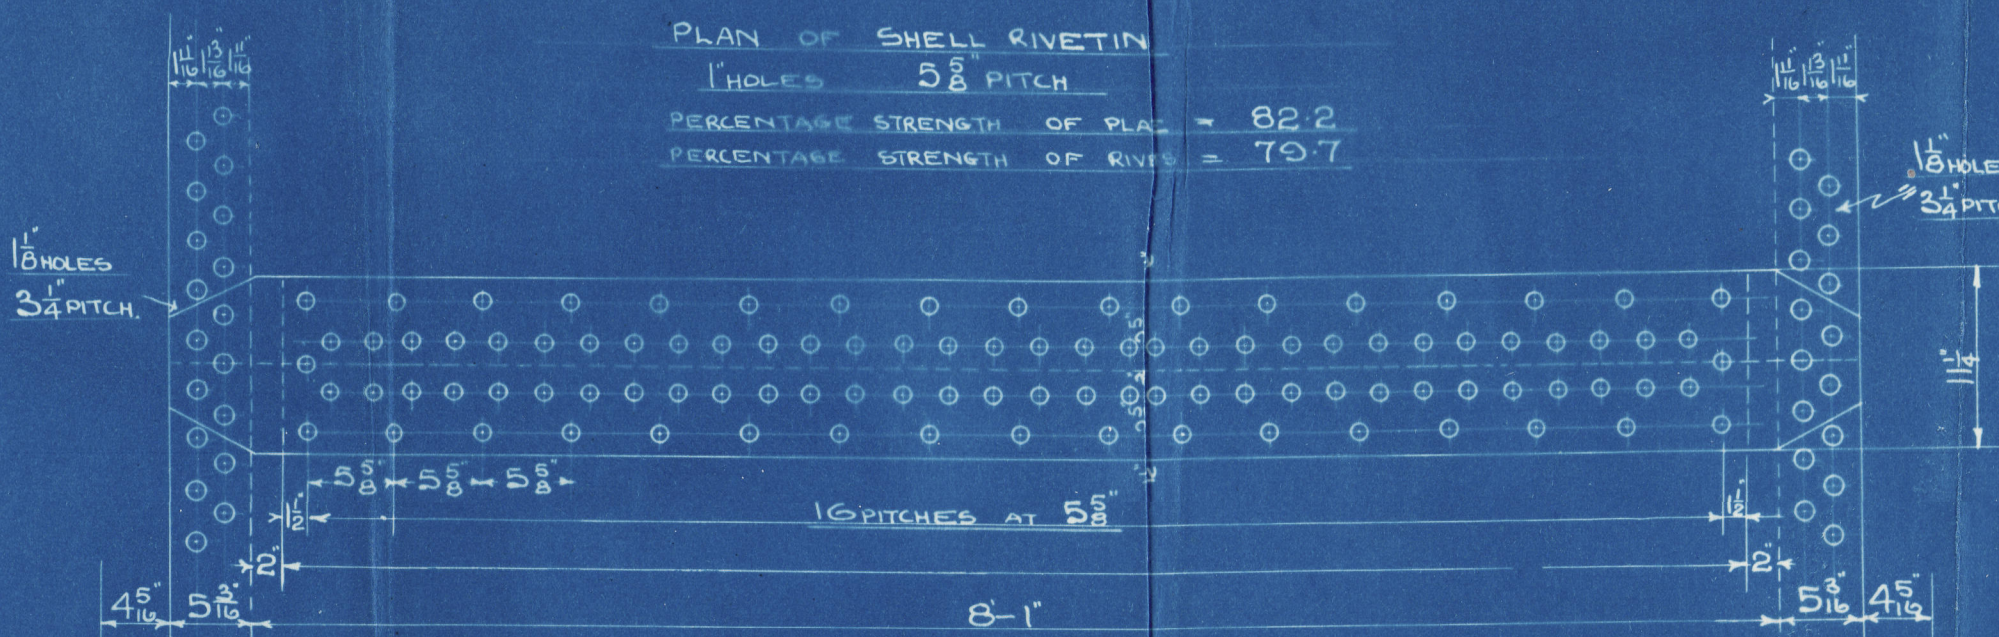 PLAN OF SHELL RIVETIN
1" HOLES 5 5/8" PITCH
PERCENTAGE STRENGTH OF PLA = 82.2
PERCENTAGE STRENGTH OF RIVS = 79.7
1 11/16" 1 13/16" 1 11/16"
1 11/16" 1 13/16" 1 11/16"
1 1/8" HOLES
3 1/4" PITCH.
1 1/8" HOLE
3 1/4" PITC
11 1/4"
5 5/8" 5 5/8" 5 5/8"
1 1/2"
16 PITCHES AT 5 5/8"
1 1/2"
2"
2"
4 5/16" 5 3/16"
8'-1"
5 3/16" 4 5/16"